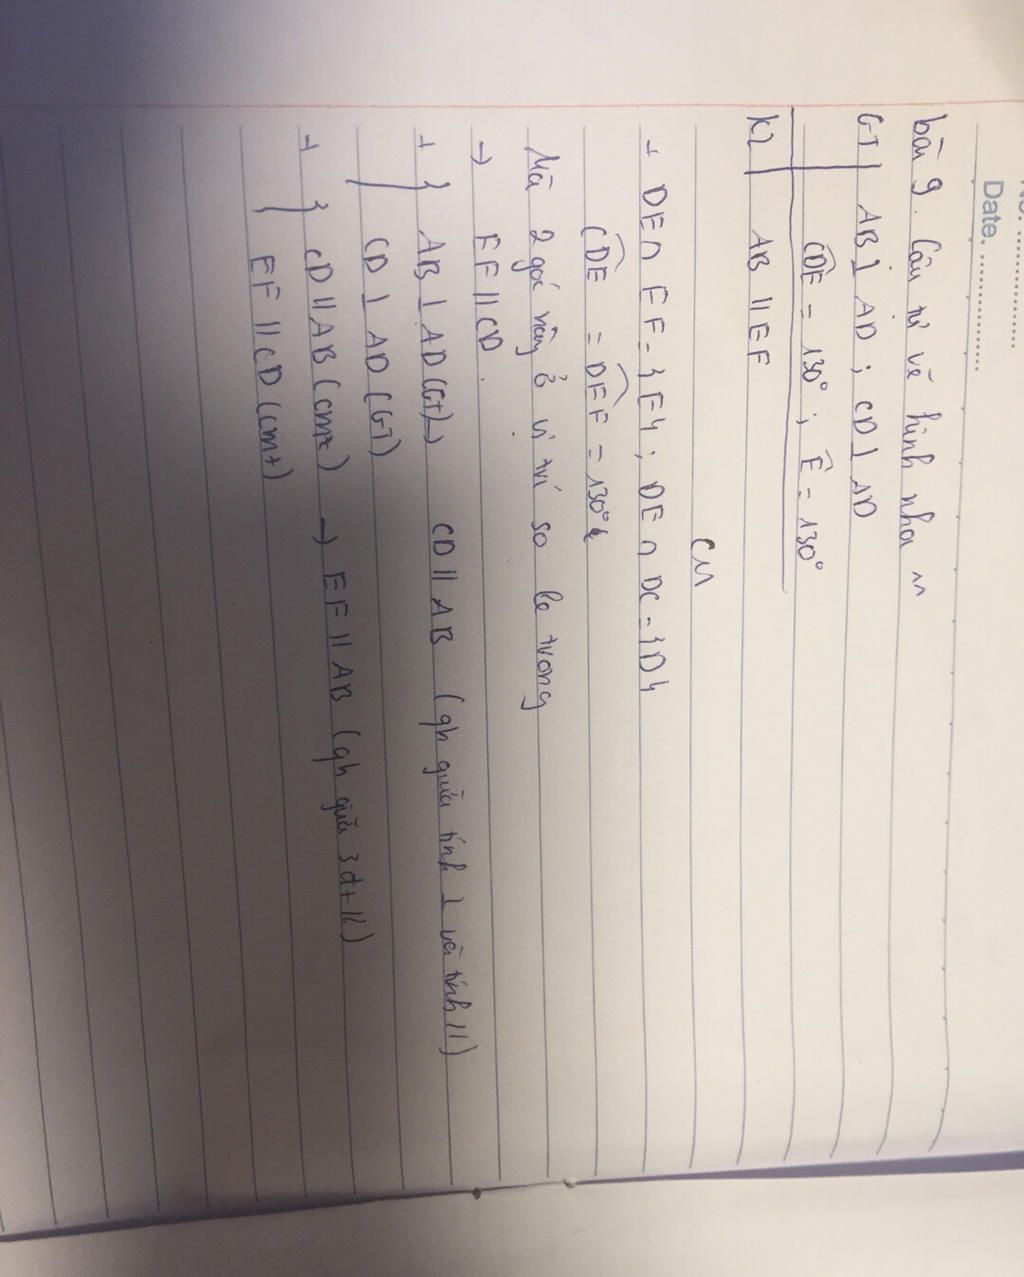 No. ..................
Date. ..................
bài 9. Cậu tự vẽ hình nha ~
GT | AB ⊥ AD ; CD ⊥ AD
CDE = 130° ; Ê = 130°
KL | AB // EF
CM
+ DE ∩ EF = {E} ; DE ∩ DC = {D}
CDE = DEF = 130°
Mà 2 góc này ở vị trí so le trong
→ EF // CD.
+ } AB ⊥ AD (GT) CD // AB (qh giữa tính ⊥ và tính //)
CD ⊥ AD (GT)
+ } CD // AB (cmt) → EF // AB (qh giữa 3đt //)
EF // CD (cmt)